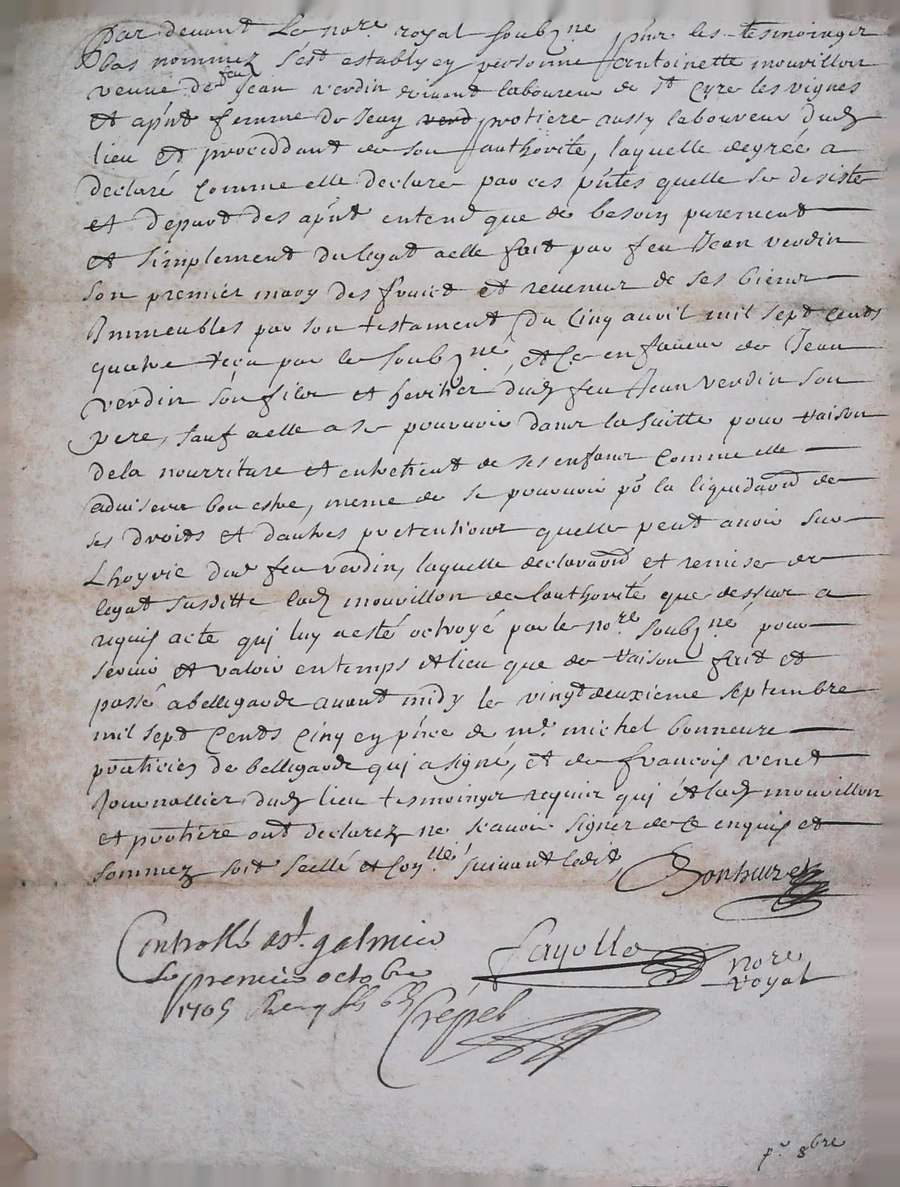 Par devant Le no.re royal soubz.né p̃nt les tesmoingz
bas nommez s'est estably en personne Antoinette mouvillon
veuve de feu Jean verdin vivant laboureur de St Cyre les vignes
et ap̃nt femme de Jean verd protiere aussy laboureur dud.
lieu et proceddant de son authorité, laquelle degrée a
declaré comme elle declare par ces p̃ntes quelle se desiste
et depart des ap̃nt entend que de besoin purement
et simplement du legat a elle fait par feu Jean verdin
son premier mary des fruict et revenus de ses biens
Immeubles par son testament du Cinq avril mil sept Cents
quatre reçu par le soubz.né, et Ce en faveur de Jean
verdin son fils et heritier dud. feu Jean verdin son
pere, sauf a elle a se pouvoir dans la suitte pour raison
de la nourriture et entretient de ses enfans comme elle
advisera bon estre, meme de se pouvoir po la liquida.on de
ses droits et dautres pretentions quelle peut avoir sur
Lhoyrie dud. feu verdin, laquelle declara.on et remise de
legat susditte lad. mouvillon de lauthorité que dessus a
requis acte qui luy a esté octroyé par le no.re soubz.né pour
servir et valoir en temps et lieu que de raison fait et
passé a bellegarde avant midy le vingt deuxieme septembre
mil sept Cents Cinq en p̃nce de m.e michel bonneure
praticien de bellegarde qui a signé, et de francois venet
Journallier dud. lieu tesmoingz requis qui et lad. mouvillon
et protiere ont declarez ne scavoir signer de Ce enquis et
sommez soit scellé et Con.llé suivant ledit,
Controllé a St. galmier
Fayolle no.re
royal
Le premier octobre
1705
Crépet
p.r 8bre